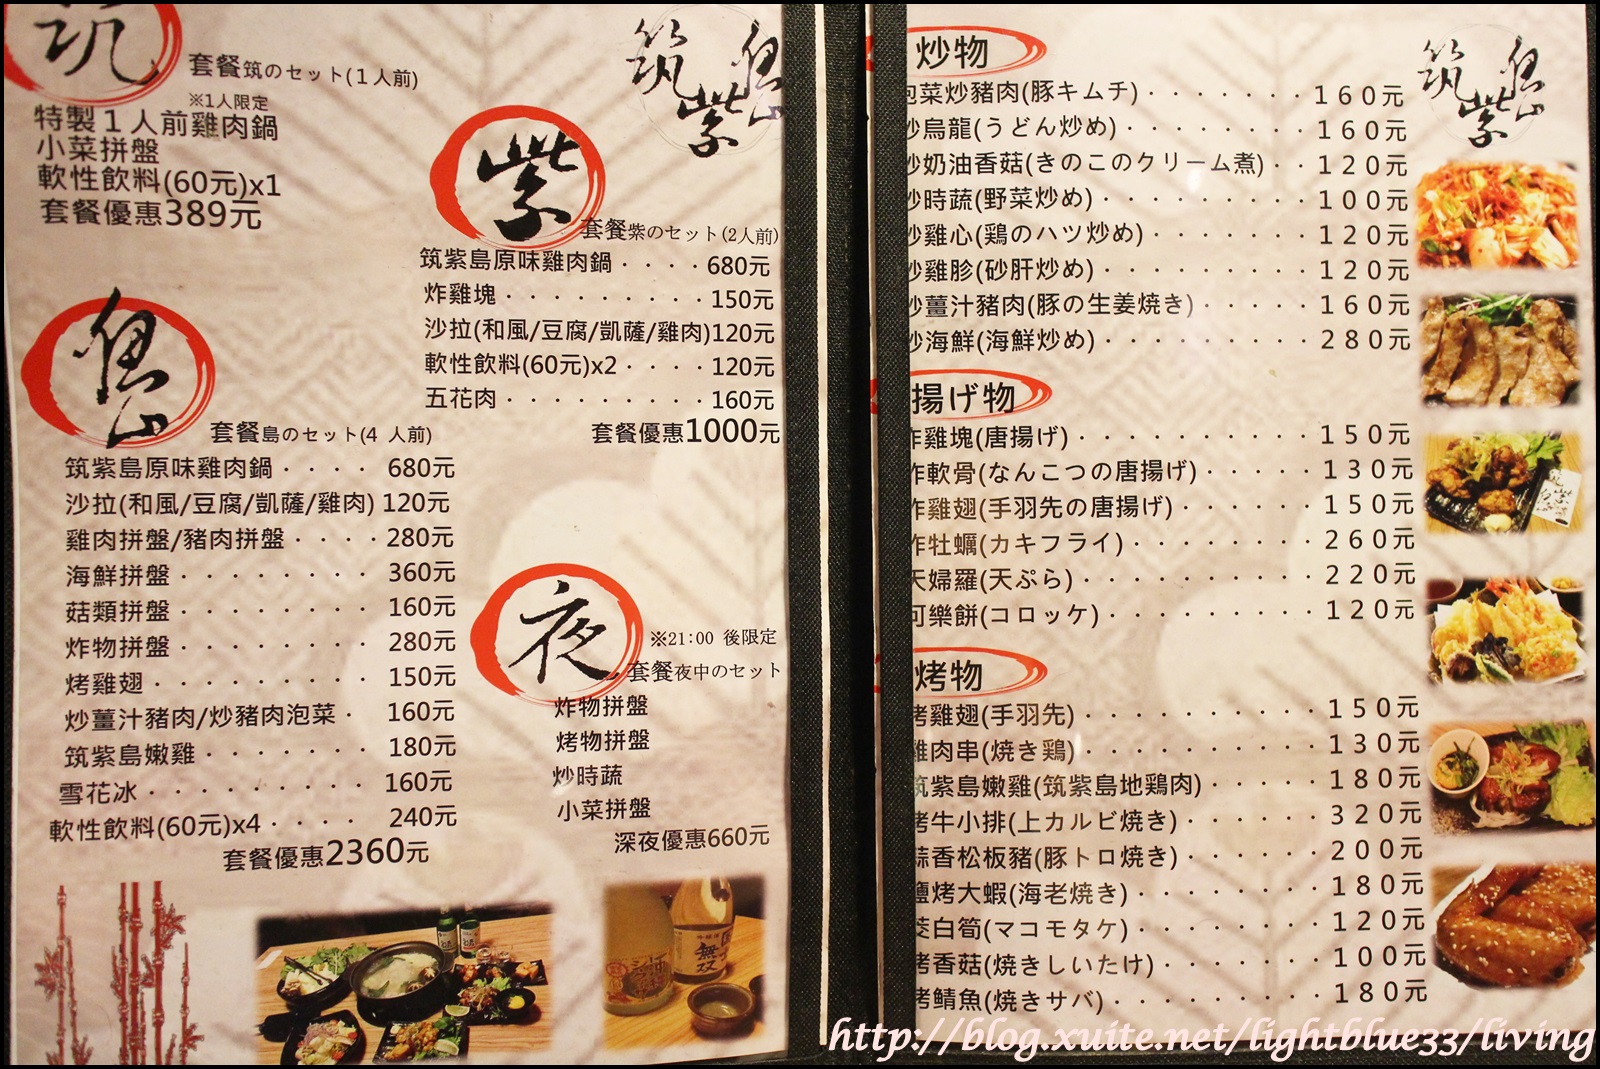 筑
套餐筑のセット(1人前)
※1人限定
特製1人前雞肉鍋
小菜拼盤
軟性飲料(60元)x1
套餐優惠389元
筑紫島
紫
套餐紫のセット(2人前)
筑紫島原味雞肉鍋････680元
炸雞塊･････････150元
沙拉(和風/豆腐/凱薩/雞肉)120元
軟性飲料(60元)x2････120元
五花肉･････････160元
套餐優惠1000元
島
套餐島のセット(4 人前)
筑紫島原味雞肉鍋････ 680元
沙拉(和風/豆腐/凱薩/雞肉) 120元
雞肉拼盤/豬肉拼盤････280元
海鮮拼盤････････ 360元
菇類拼盤････････ 160元
炸物拼盤････････ 280元
烤雞翅･････････ 150元
炒薑汁豬肉/炒豬肉泡菜･ 160元
筑紫島嫩雞･･･････ 180元
雪花冰･････････ 160元
軟性飲料(60元)x4････ 240元
套餐優惠2360元
夜
※21:00 後限定
套餐夜中のセット
炸物拼盤
烤物拼盤
炒時蔬
小菜拼盤
深夜優惠660元
無双
炒物
筑紫島
泡菜炒豬肉(豚キムチ)･･･････160元
炒烏龍(うどん炒め)････････160元
炒奶油香菇(きのこのクリーム煮)･･120元
炒時蔬(野菜炒め)･････････100元
炒雞心(鶏のハツ炒め)･･･････120元
炒雞胗(砂肝炒め)･････････120元
炒薑汁豬肉(豚の生姜焼き)･････160元
炒海鮮(海鮮炒め)･････････280元
揚げ物
炸雞塊(唐揚げ)･･････････150元
炸軟骨(なんこつの唐揚げ)･････130元
炸雞翅(手羽先の唐揚げ)･･････150元
炸牡蠣(カキフライ)････････260元
天婦羅(天ぷら)･･････････220元
可樂餅(コロッケ)･････････120元
烤物
烤雞翅(手羽先)･･････････150元
雞肉串(焼き鶏)･･････････130元
筑紫島嫩雞(筑紫島地鶏肉)･････180元
烤牛小排(上カルビ焼き)･･････320元
蒜香松板豬(豚トロ焼き)･･････200元
鹽烤大蝦(海老焼き)････････180元
茭白筍(マコモタケ)････････120元
烤香菇(焼きしいたけ)･･･････100元
烤鯖魚(焼きサバ)･････････180元
http://blog.xuite.net/lightblue33/living